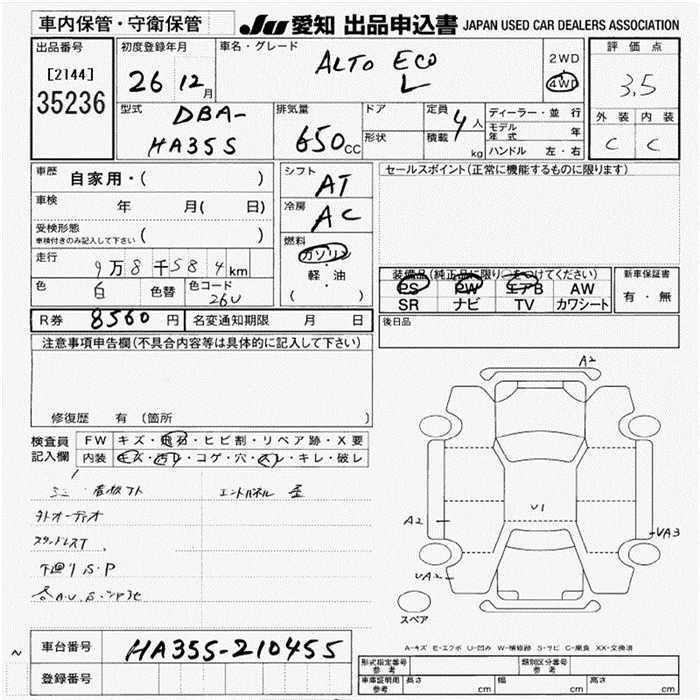 車内保管・守衛保管
JU 愛知 出品申込書 JAPAN USED CAR DEALERS ASSOCIATION
出品番号
[2144]
35236
初度登録年月
26 12月
車名・グレード
ALTO ECO
L
2WD
4WD
評価点
3.5
外装 内装
C C
型式
DBA-
HA35S
排気量
650cc
ドア
形状
定員 4人
積載 kg
ディーラー・並行
モデル年式 年
ハンドル 左・右
車歴
自家用・( )
車検 年 月( 日)
受検形態
車検付きのみ記入して下さい ( )
走行 9万8千584km
色 白 色替 色コード 26U
R券 8560円 名変通知期限 月 日
シフト
AT
冷房
AC
燃料
ガソリン
軽・油
( )
セールスポイント(正常に機能するものに限ります)
装備品(純正品に限り○をつけてください)
PS PW エアB AW
SR ナビ TV カワシート
新車保証書
有・無
後日品
注意事項申告欄(不具合内容等は具体的に記入して下さい)
修復歴 有(箇所
検査員記入欄
FW キズ・飛石・ヒビ割・リペア跡・X要
内装 キズ・汚れ・コゲ・穴・スレ・キレ・破レ
外オーディオ
下廻りS・P
A2
U1
A2
VA3
UA2
スペア
A-キズ E-エクボ U-凹み W-補修跡 S-サビ C-腐食 XX-交換済
車台番号 HA35S-210455
登録番号
型式指定番号 参考
類別区分番号 参考
車庫証明用 参考 長さ cm 幅 cm 高さ cm